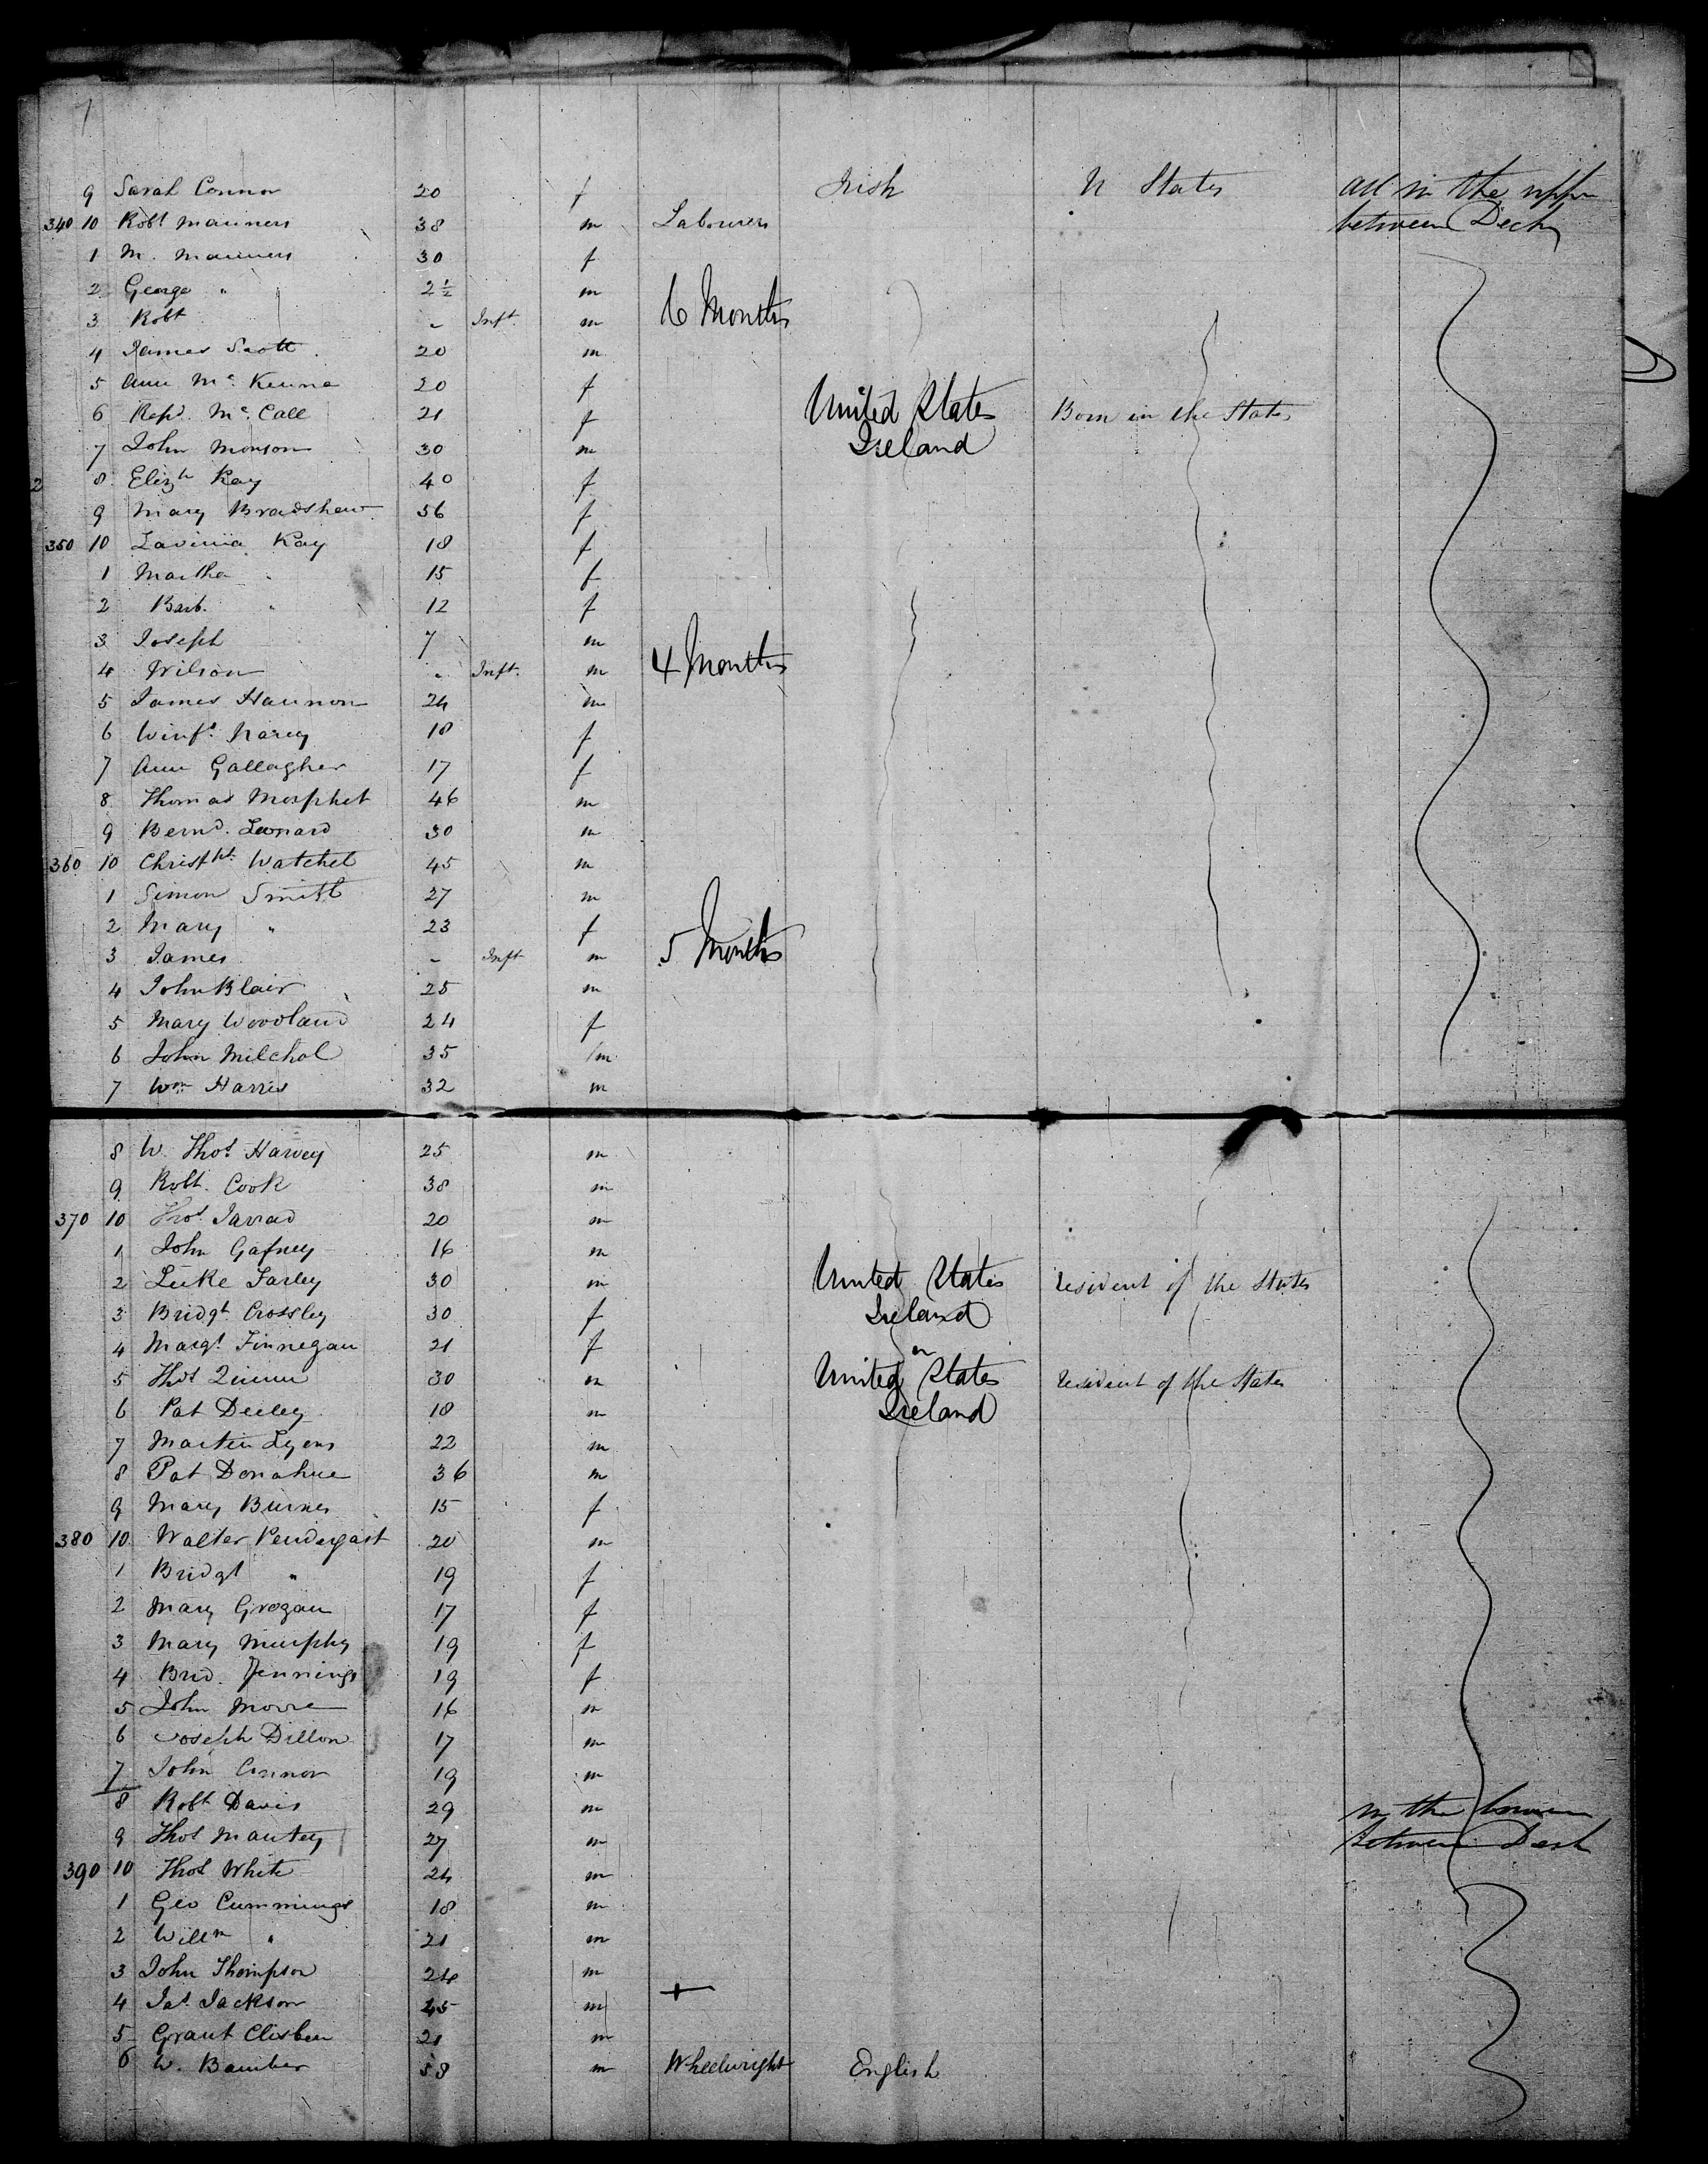 9 Sarah Connor 20 f Irish U States All in the upper
340 10 Robt Manners 38 m Labourer between Deck
1 M. Manners 30 f
2 George " 2½ m
3 Robt - Inft. m 6 Months
4 James Scott 20 m
5 Ann Mc Kenna 20 f
6 Mc Call 21 f United States Born in the States
7 John Monson 30 m Ireland
2 8 Elizh Kay 40 f
9 Mary Bradshaw 56 f
350 10 Lavinia Kay 18 f
1 Martha " 15 f
2 Barb. " 12 f
3 Joseph 7 m
4 Wilson " Inft. m 4 Months
5 James Hannon 24 m
6 Winfd. Narey 18 f
7 Ann Gallagher 17 f
8 Thomas Morphet 46 m
9 Bernd. Leonard 30 m
360 10 Christhr. Watchet 45 m
1 Simon Smith 27 m
2 Mary " 23 f
3 James - Inft m 5 Months
4 John Blair 25 m
5 Mary Woodland 24 f
6 John Milchol 35 m
7 Wm Harris 32 m
8 W. Thos Harvey 25 m
9 Robt. Cook 38 m
370 10 Thos Jarrad 20 m
1 John Gafney 16 m
2 Luke Farley 30 m United States resident of the States
3 Bridgt Crossley 30 f Ireland
4 Margt Finnegan 21 f
5 Thos Quinn 30 m United States resident of the States
6 Pat Deeley 18 m Ireland
7 Martin Lyons 22 m
8 Pat Donahue 36 m
9 Mary Burnes 15 f
380 10 Walter Pendergast 20 m
1 Bridgt " 19 f
2 Mary Grogan 17 f
3 Mary Murphy 19 f
4 Brid. Jennings 19 f
5 John Moore 16 m
6 Joseph Dillon 17 m
7 John Connor 19 m
8 Robt Davis 29 m in the lower
9 Thos Mantey 27 m between Deck
390 10 Thos White 24 m
1 Geo Cummings 18 m
2 Willm " 21 m
3 John Thompson 24 m
4 Jas Jackson 45 m +
5 Grant Clisben 21 m
6 W. Bamber 58 m Wheelwright English